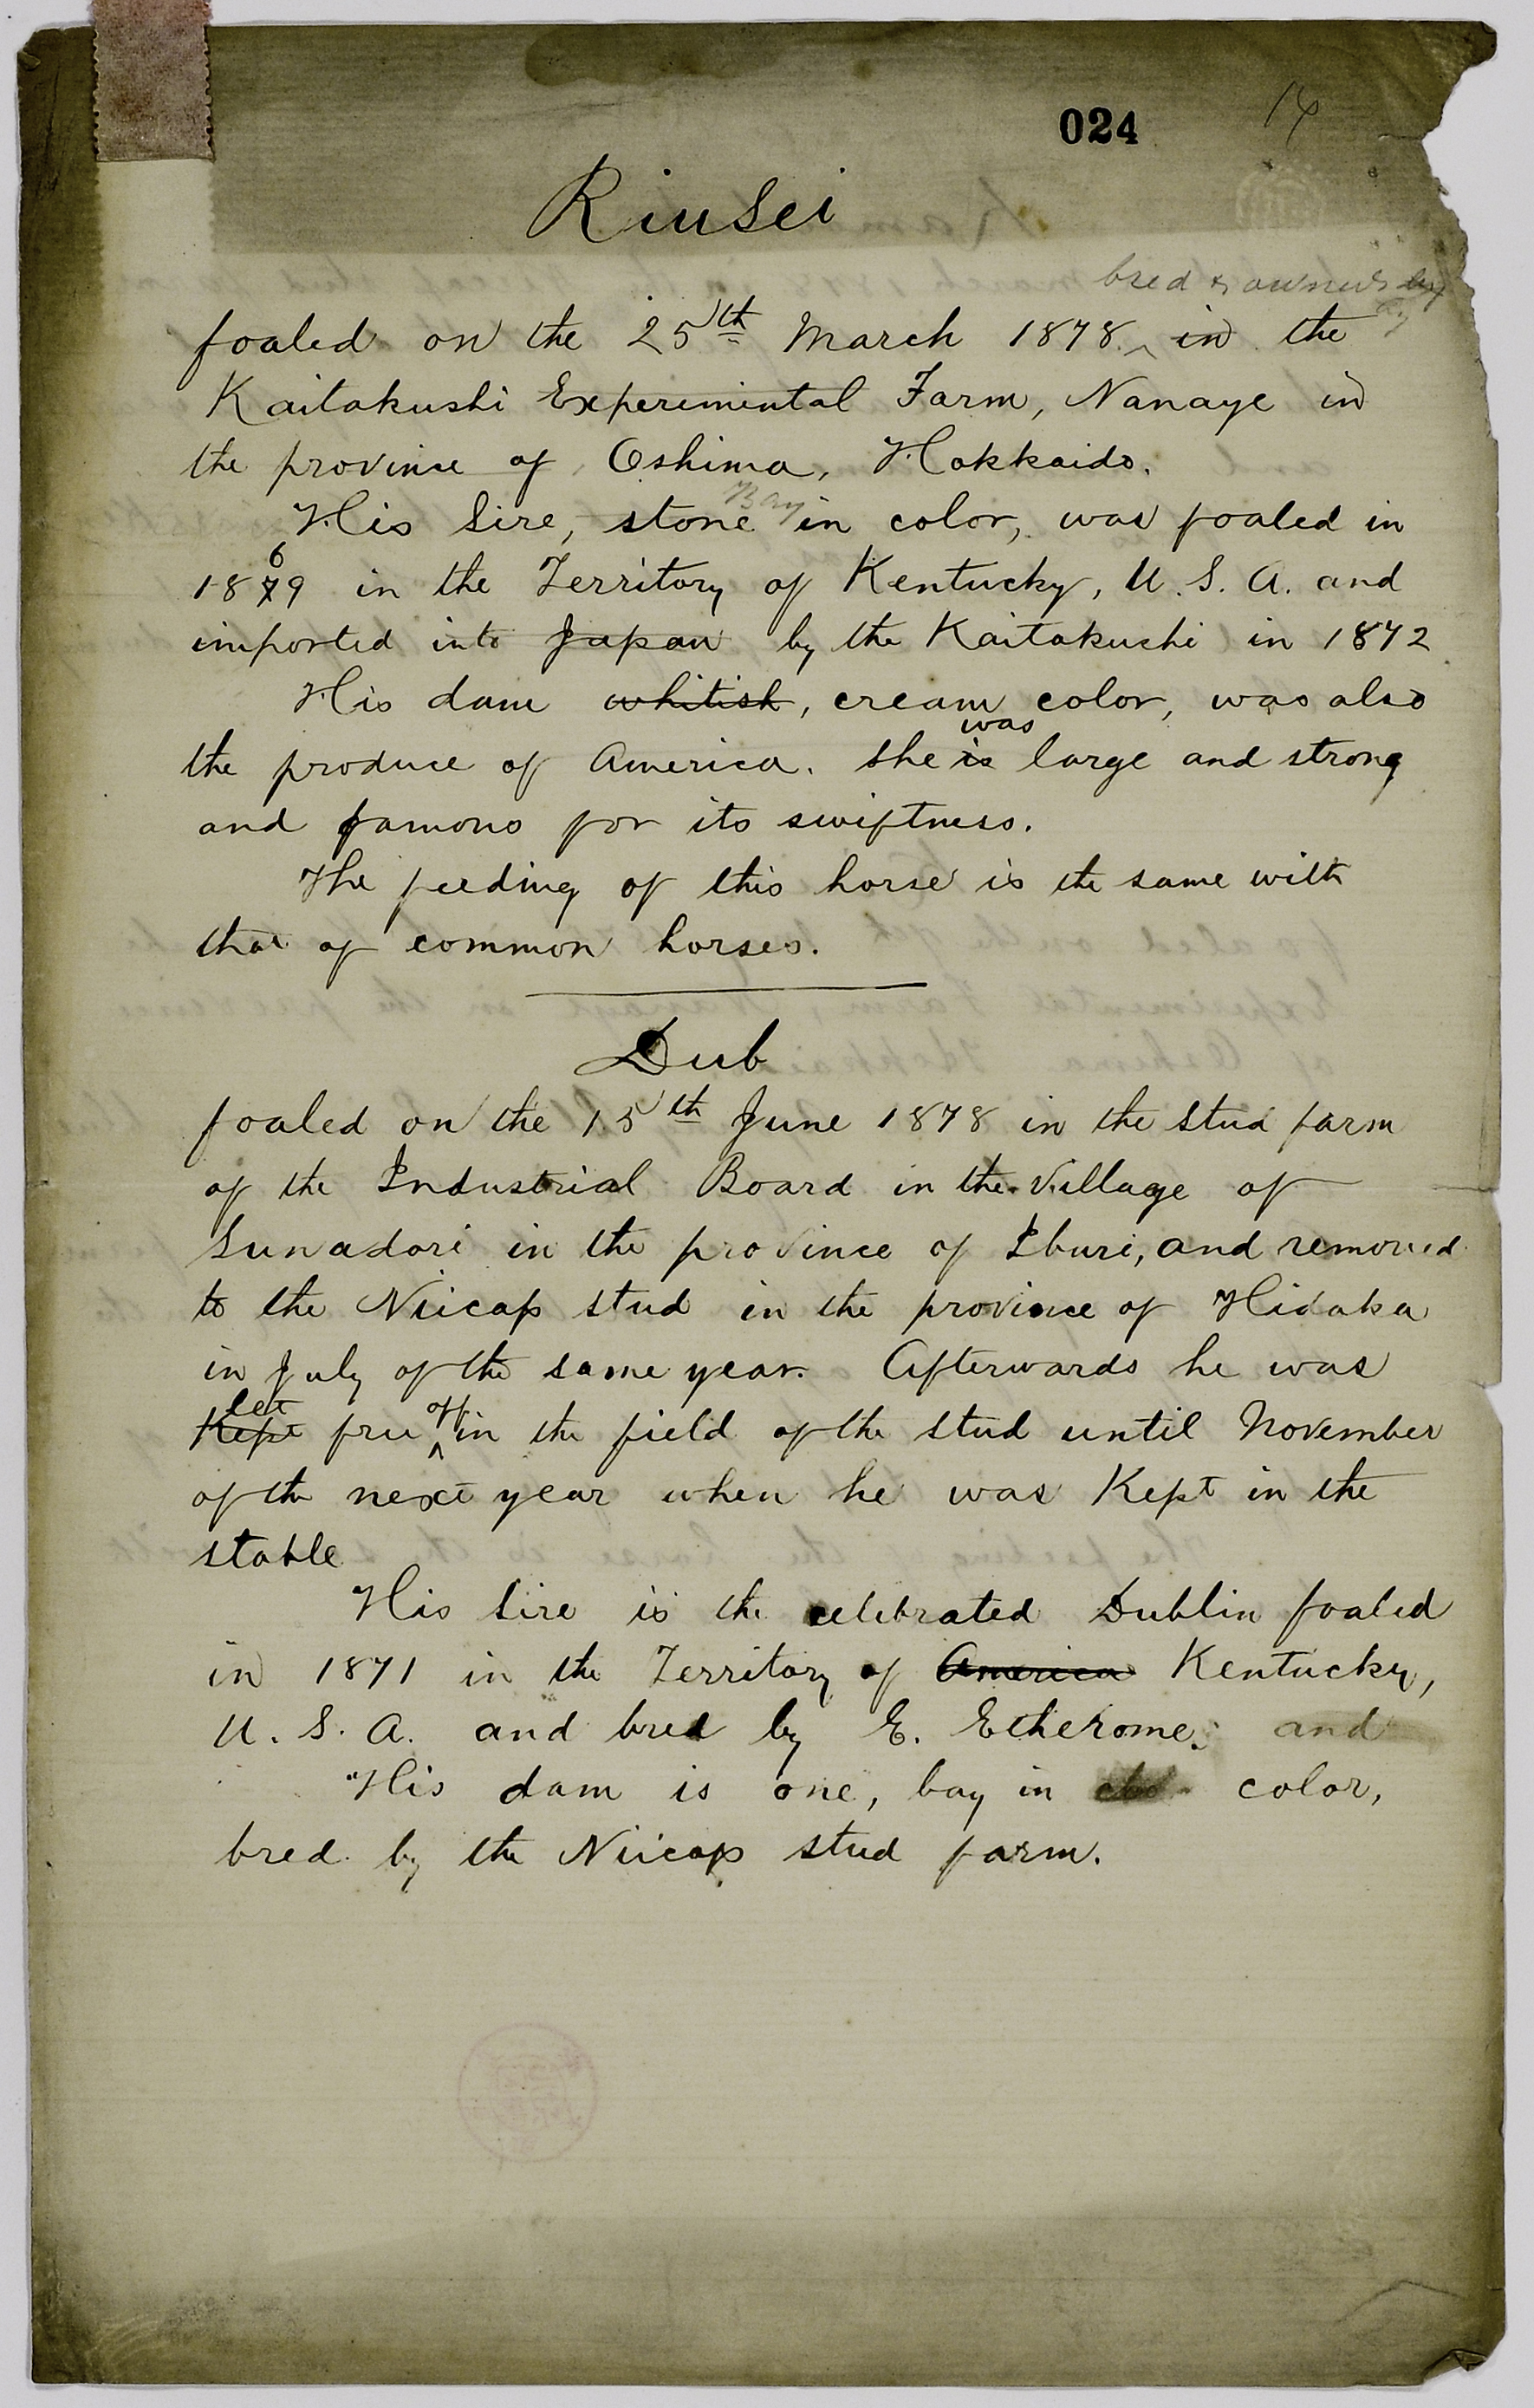 024
Riusei
bred & owned by
foaled on the 25th March 1878 in the
Kaitakushi Experimental Farm, Nanaye in
the province of Oshima, Hokkaido.
Bay
His Sire, stone in color, was foaled in
6
1879 in the Territory of Kentucky, U. S. A. and
imported into Japan by the Kaitakuchi in 1872
His dam whitish, cream color, was also
was
the produce of America. She is large and strong
and famous for its swiftness.
The feeding of this horse is the same with
that of common horses.
Dub
foaled on the 15th June 1878 in the stud farm
of the Industrial Board in the Village of
Sunadori in the province of Iburi, and removed
to the Niicap stud in the province of Hidaka
in July of the same year. Afterwards he was
let off
Kept free in the field of the stud until November
of the next year when he was Kept in the
stable
His Sire is the celebrated Dublin foaled
in 1871 in the Territory of America Kentucky,
U. S. A. and bred by E. Etherome. and
His dam is one, bay in color,
bred by the Niicap stud farm.